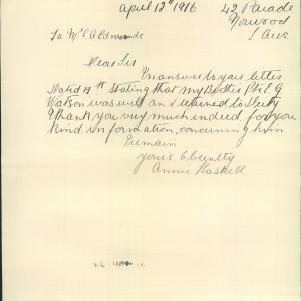 April 12th 1916
42 Parade
Norwood
To Mr C A Edmunds
Dear Sir
In answer to your letter
Dated 11th stating that my Brother Pte E G
Watson was well and returned to Duty
I thank you very much indeed for your
kind information, concerning him
I remain
yours Obiently
Annie Haskell